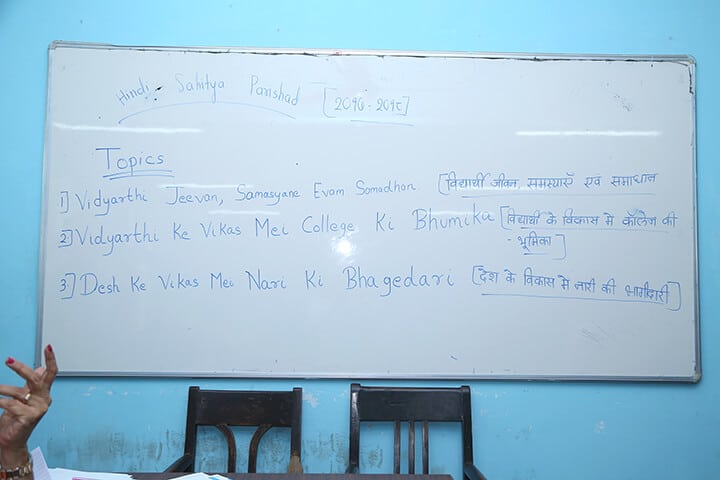 Hindi Sahitya Parishad [२०१७ - २०१८]
Topics
1] Vidyarthi Jeevan, Samasyane Evam Samadhan [विद्यार्थी जीवन समस्याएँ एवं समाधान
2] Vidyarthi Ke Vikas Mei College Ki Bhumika [विद्यार्थी के विकास मे कॉलेज की
- भूमिका]
3] Desh Ke Vikas Mei Nari Ki Bhagedari [देश के विकास मे नारी की भागीदारी]